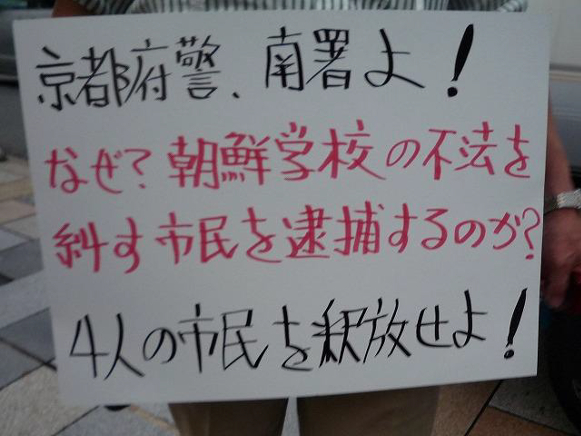 京都府警、南署よ!
なぜ?朝鮮学校の不法を
糾す市民を逮捕するのか?
4人の市民を釈放せよ!